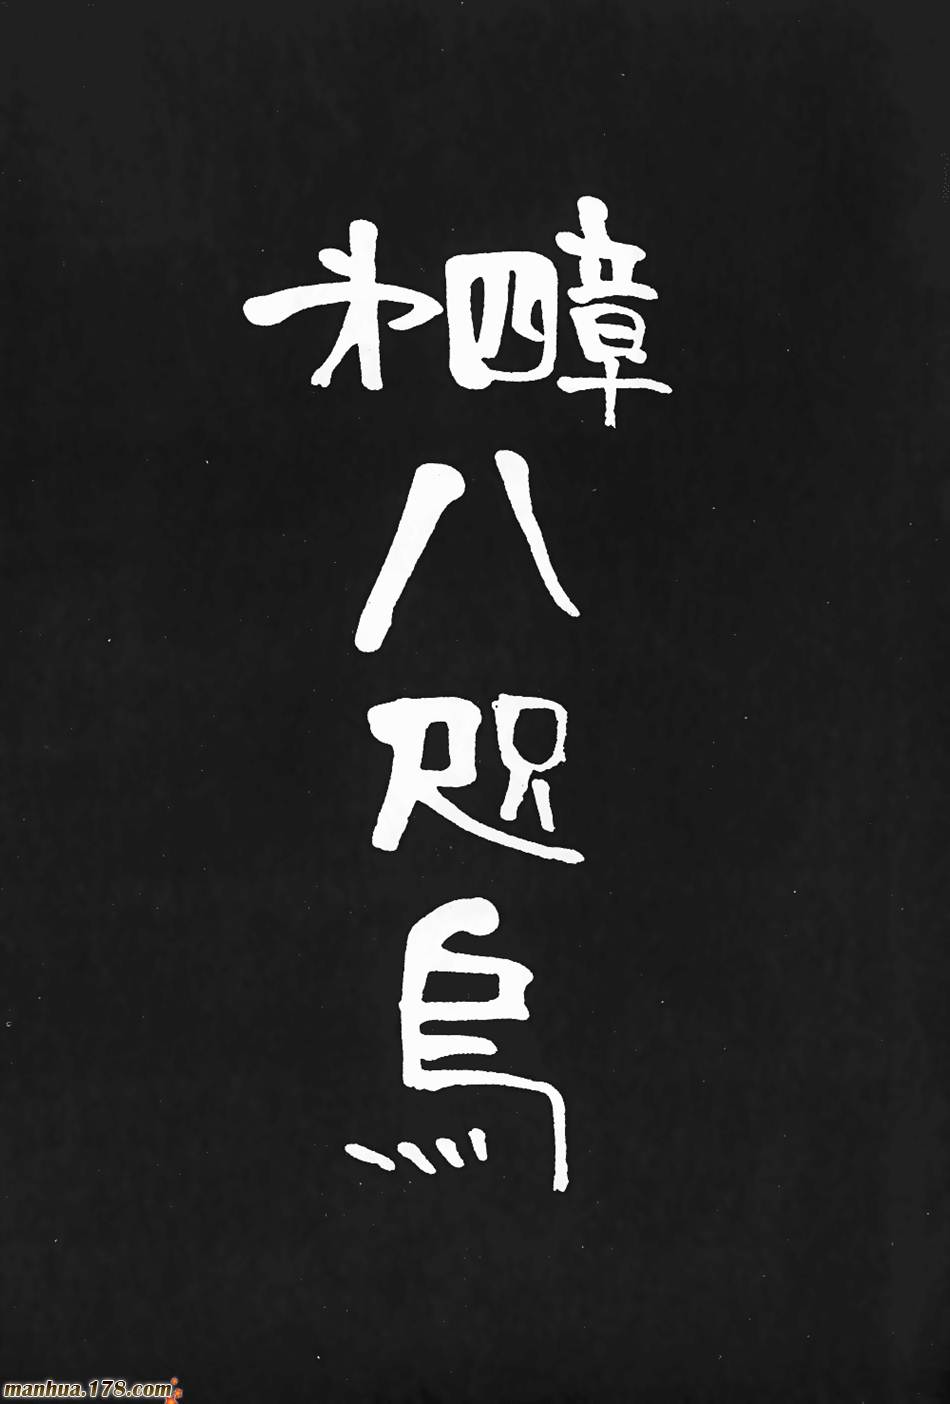 第四章
八咫烏
manhua.178.com